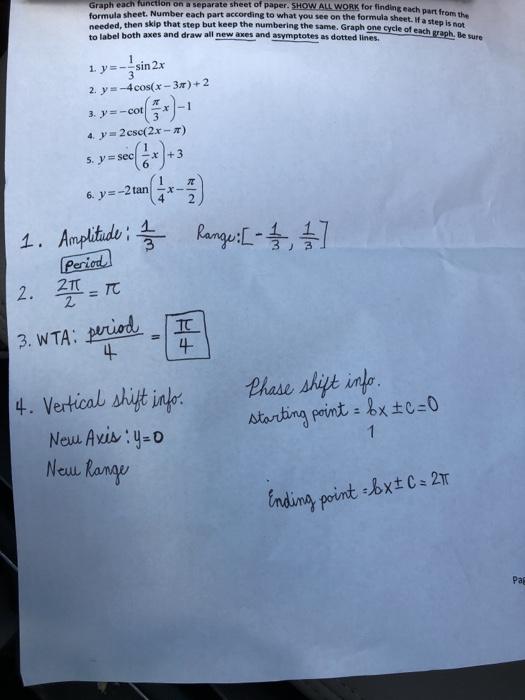 Graph each function on a separate sheet of paper. SHOW ALL WORK for finding each part from the
formula sheet. Number each part according to what you see on the formula sheet. If a step is not
needed, then skip that step but keep the numbering the same. Graph one cycle of each graph. Be sure
to label both axes and draw all new axes and asymptotes as dotted lines.
1. y = -1/3 sin 2x
2. y = -4cos(x - 3π) + 2
3. y = -cot(π/3 x) - 1
4. y = 2csc(2x - π)
5. y = sec(1/6 x) + 3
6. y = -2tan(1/4 x - π/2)
1. Amplitude: 1/3 Range: [-1/3, 1/3]
Period
2. 2π/2 = π
3. WTA: period/4 = π/4
4. Vertical shift info. Phase shift info.
starting point = bx ± c = 0
New Axis: y=0 1
New Range
Ending point = bx ± c = 2π
Pag